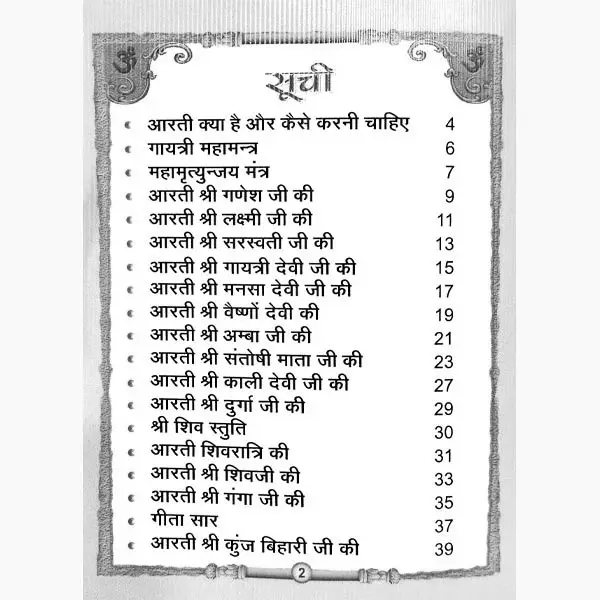 ॐ ॐ
सूची
आरती क्या है और कैसे करनी चाहिए 4
गायत्री महामन्त्र 6
महामृत्युन्जय मंत्र 7
आरती श्री गणेश जी की 9
आरती श्री लक्ष्मी जी की 11
आरती श्री सरस्वती जी की 13
आरती श्री गायत्री देवी जी की 15
आरती श्री मनसा देवी जी की 17
आरती श्री वैष्णों देवी की 19
आरती श्री अम्बा जी की 21
आरती श्री संतोषी माता जी की 23
आरती श्री काली देवी जी की 27
आरती श्री दुर्गा जी की 29
श्री शिव स्तुति 30
आरती शिवरात्रि की 31
आरती श्री शिवजी की 33
आरती श्री गंगा जी की 35
गीता सार 37
आरती श्री कुंज बिहारी जी की 39
2